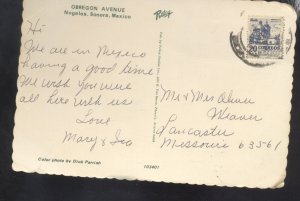 OBREGON AVENUE
Nogales, Sonora, Mexico
Hi
We are in Mexico
having a good time
We wish you were
all here with us
Love
Mary & Leo
Color photo by Dick Parrish
103401
20
CORREOS
Mr & Mrs Oliver
Weaver
Lancaster
Missouri 63561